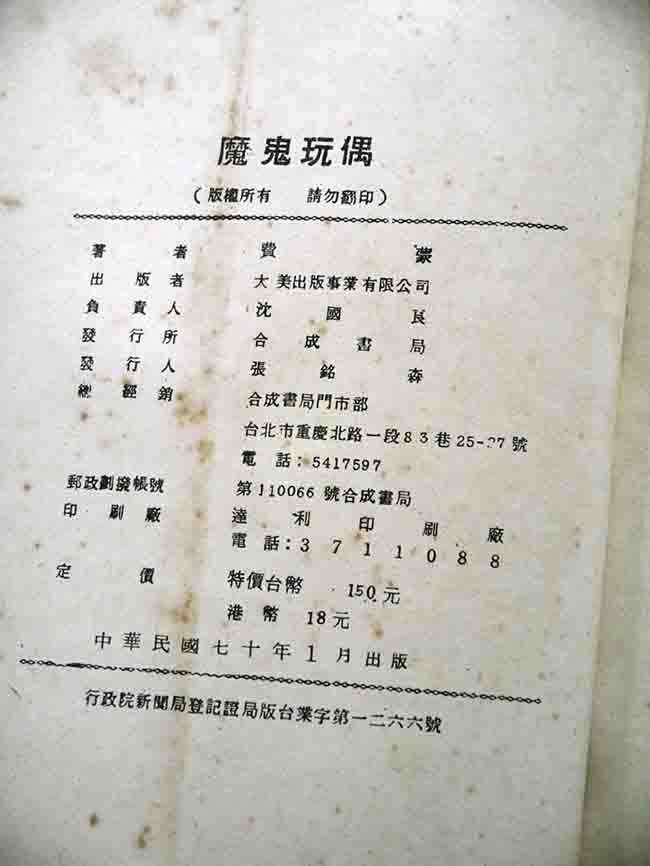 魔鬼玩偶
（版權所有　請勿翻印）
著者　費蒙
出版者　大美出版事業有限公司
負責人　沈國良
發行所　合成書局
發行人　張銘森
總經銷　合成書局門市部
台北市重慶北路一段83巷25-27號
電話：5417597
郵政劃撥帳號　第110066號合成書局
印刷廠　達利印刷廠
電話：3711088
定價　特價台幣　150元
港幣　18元
中華民國七十年1月出版
行政院新聞局登記證局版台業字第一二六六號